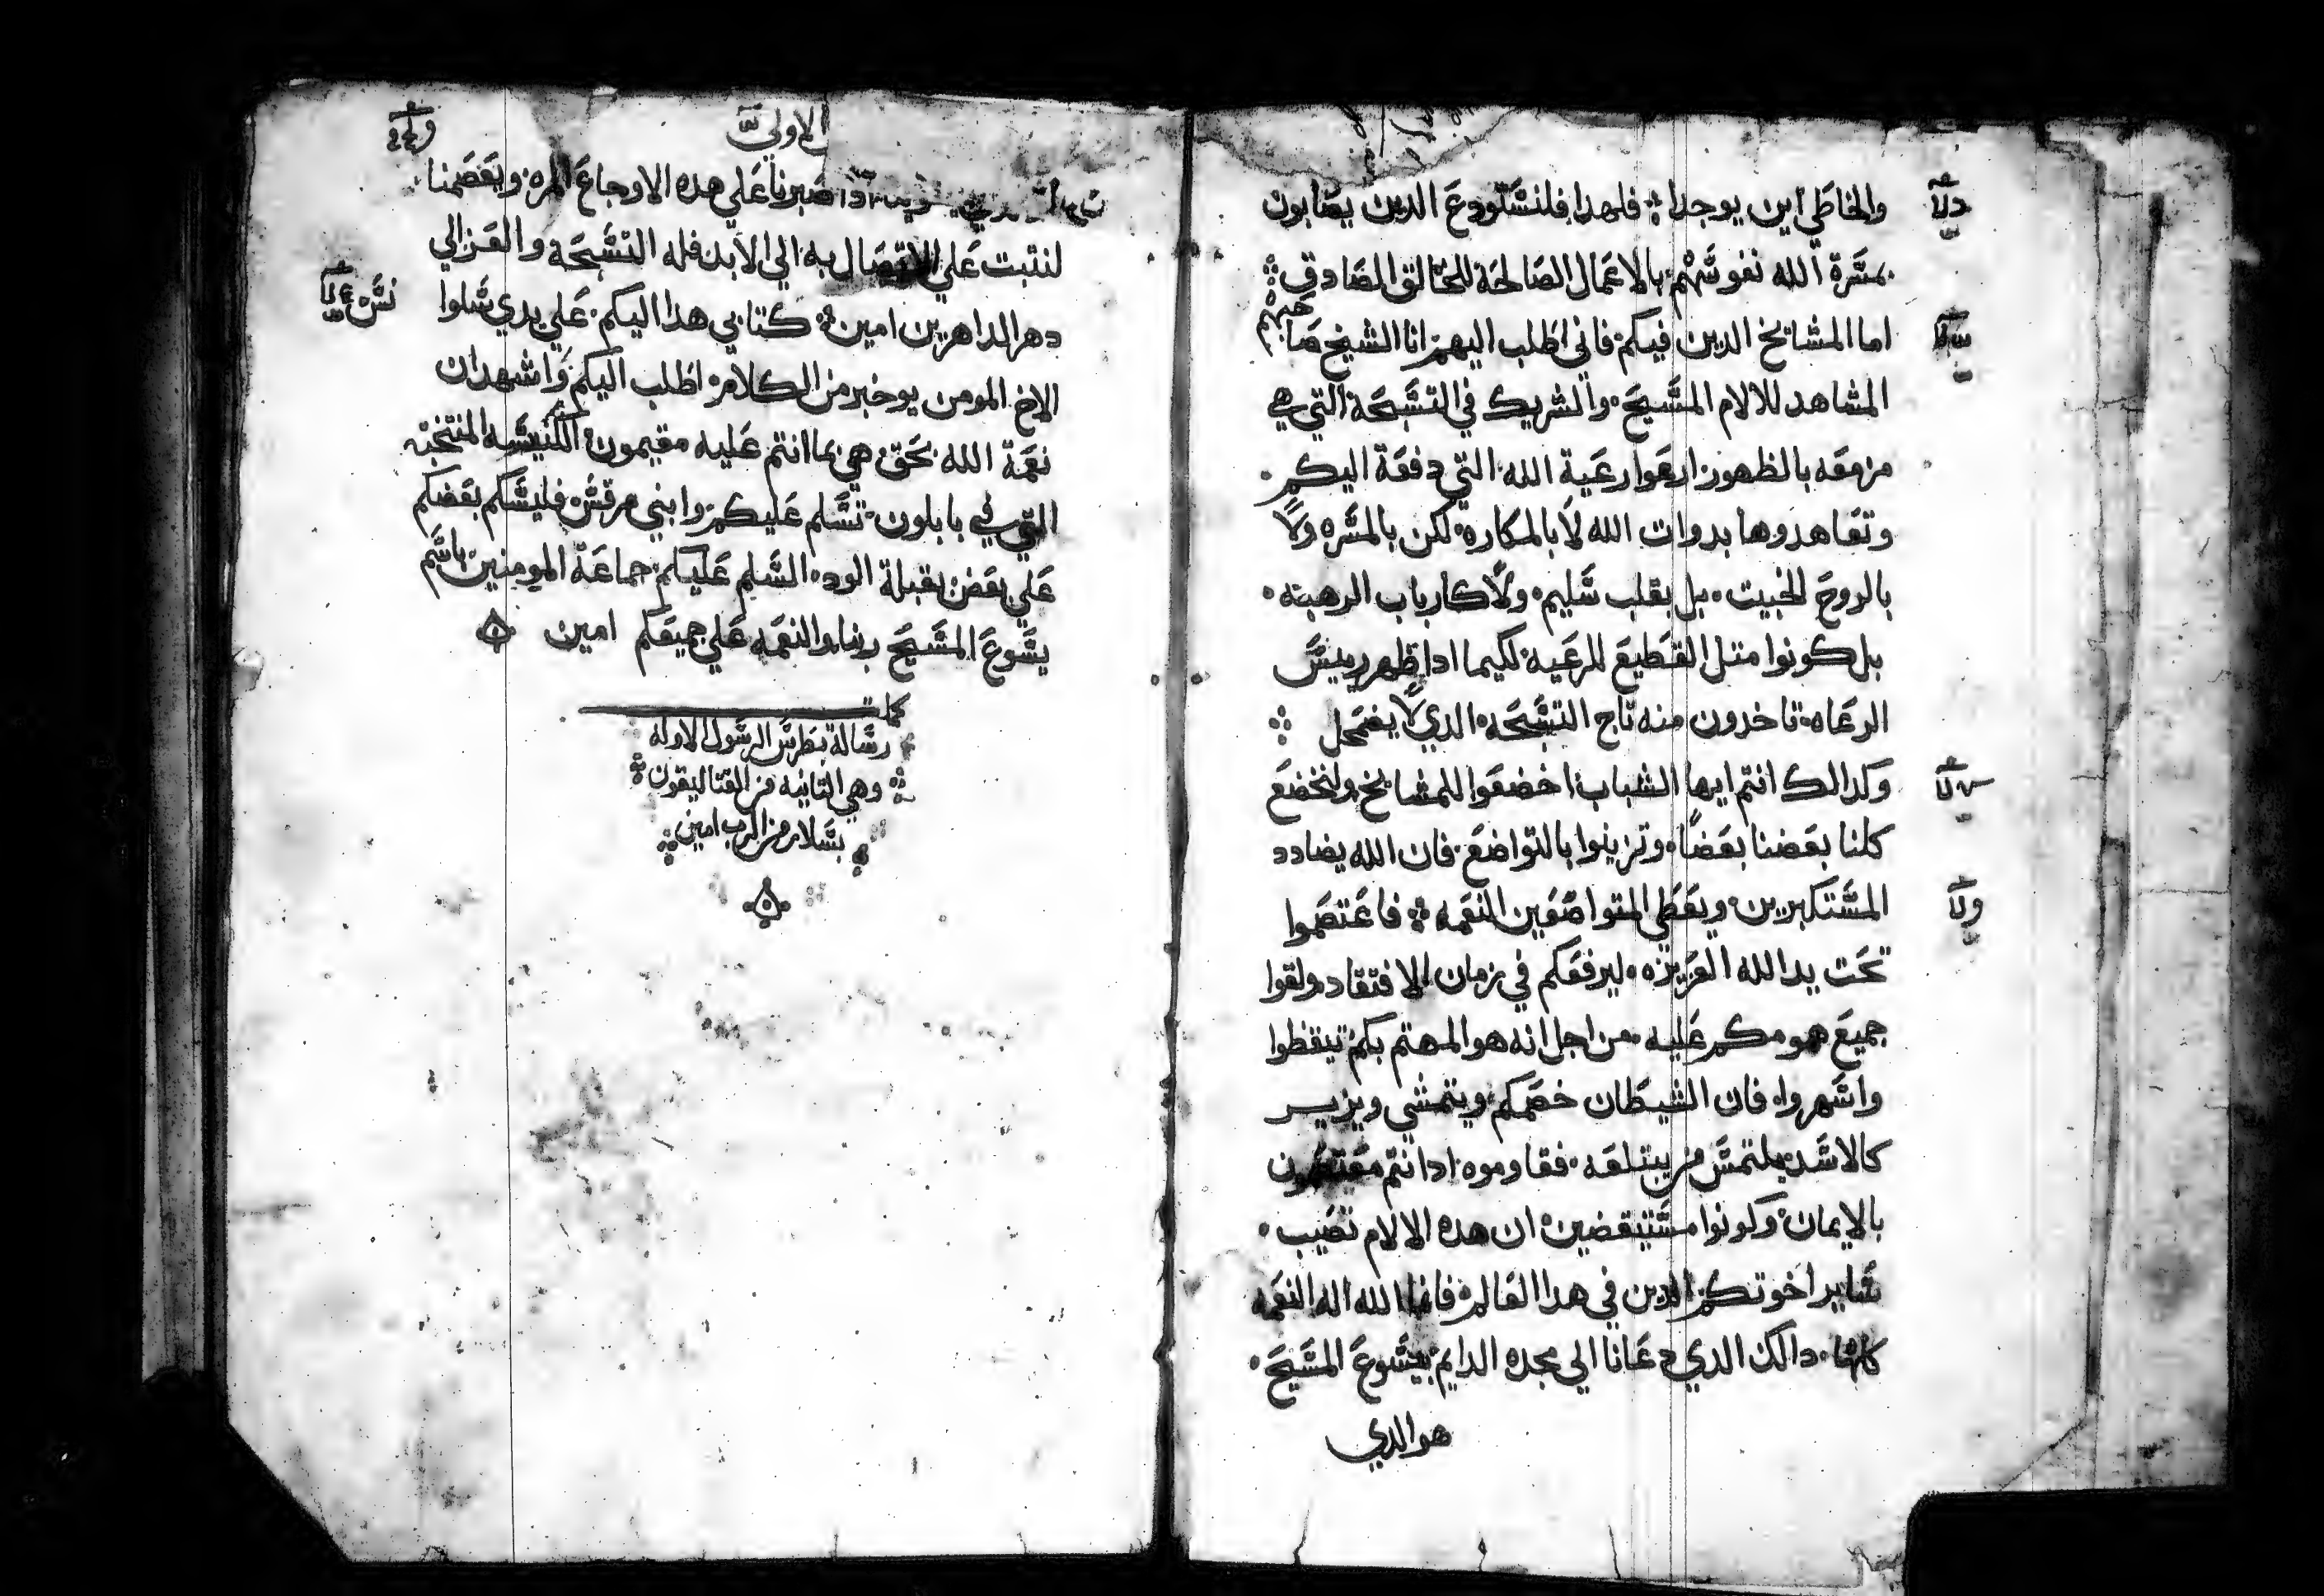 والخاطي اين يوجدا فلهدا فلنستودع الدين يصابون
بمسرة الله نفوسهم بالاعمال الصالحة للخالق الصادق
اما المشايخ الدين فيكم فاني اطلب اليهم انا الشيخ صاحبهم
المشاهد للالام المسيح والشريك في التسبحة التي هي
مزمعه بالظهور ارعوا رعية الله التي دفعة اليكم
وتعاهدوها بدوات الله لا بالمكاره لكن بالمسره ولا
بالروح الخبيت بل بقلب سليم ولا كارباب الرهبته
بل كونوا متل القطيع للرعيه لكيما ادا ظهر رييس
الرعاه تاخدون منه تاج التسبحه الدي لا يضمحل
وكدالك انتم ايها الشباب اخضعوا للمشايخ ولنخضع
كلنا بعضنا بعضا وتزينوا بالتواضع فان الله يضادد
المستكبرين ويعطي المتواضعين النعمه فاعتصموا
تحت يد الله العزيزه ليرفعكم في زمان الافتقاد ولقوا
جميع همومكم عليه من اجل انه هو المهتم بكم تيقظوا
واسهروا فان الشيطان خصمكم ويتمشي ويزير
كالاسد يلتمس من يبتلعه فقاوموه ادا انتم معتصمون
بالايمان وكونوا مستيقضين ان هده الالام تصيب
ساير اخوتكم الدين في هدا العالم فاما الله اله النعمه
كلها دالك الدي دعانا الي مجده الدايم بيسوع المسيح
هو الدي
الاولي
ادا صبرنا علي هده الاوجاع المره ويعصمنا
لنتبت علي الاتصال به الي الابد فله التسبحة والعز الي
دهر الداهرين امين كتابي هدا اليكم علي يدي سلوا
الاخ المومن يوخبر من الكلام اطلب اليكم واشهد ان
نعمة الله بحق هي بما انتم عليه مقيمون الكنيسه المنتخبه
التي في بابلون تسلم عليكم وابني مرقس فليسلم بعضكم
علي بعض بقبلة الود السلم عليكم جماعة المومنين باسم
يسوع المسيح ربنا والنعمه علي جميعكم امين
كملت
رسالة بطرس الرسول الاوله
وهي التانيه من القتاليقون
بسلام من الرب امين